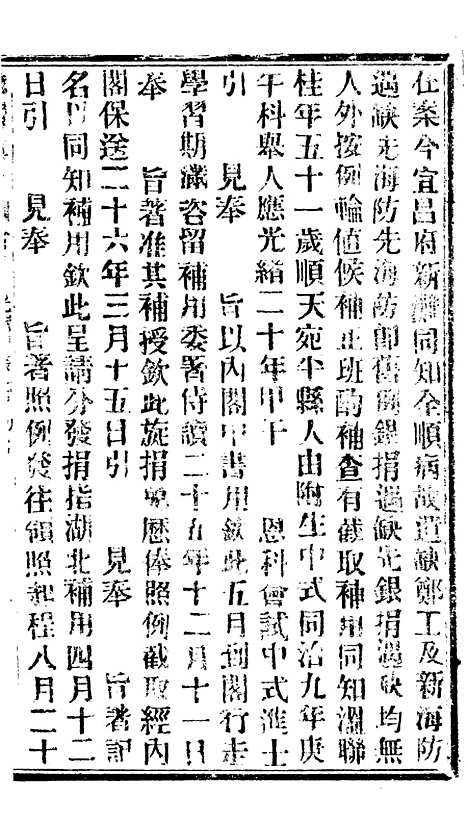 在案今宜昌府新灘同知全順病故遺缺鄭工及新海防
遇缺先海防先海防即舊例銀捐遇缺先銀捐遇缺均無
人外按例輪值候補正班酌補查有截取補用同知溫聯
桂年五十一歲順天宛平縣人由附生中式同治九年庚
午科舉人應光緒二十年甲午　恩科會試中式進士
引　見奉　旨以內閣中書用欽此五月到閣行走
學習期滿咨留補用委署侍讀二十五年十二月十一日
奉　旨著准其補授欽此旋捐歷俸照例截取經內
閣保送二十六年三月十五日引　見奉　旨著記
名以同知補用欽此呈請分發捐指湖北補用四月十二
日引　見奉　旨著照例發往領照起程八月二十